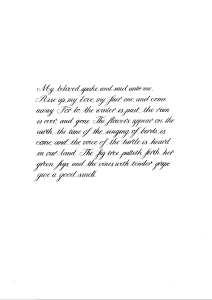 My beloved spake and said unto me,
Rise up, my love, my fair one, and come
away. For lo the winter is past, the rain
is over and gone. The flowers appear on the
earth, the time of the singing of birds is
come, and the voice of the turtle is heard
in our land. The fig tree putteth forth her
green figs, and the vines with tender grape
give a good smell.